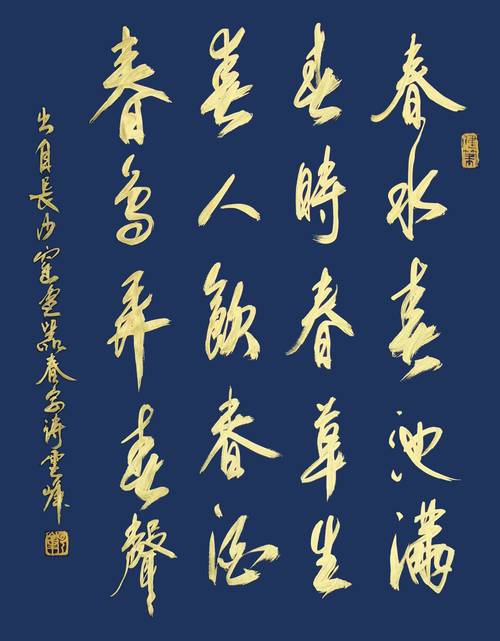 春水春池滿
春時春草生
春人飲春酒
春鳥弄春聲
出自長沙窯瓷器春字詩雲峰